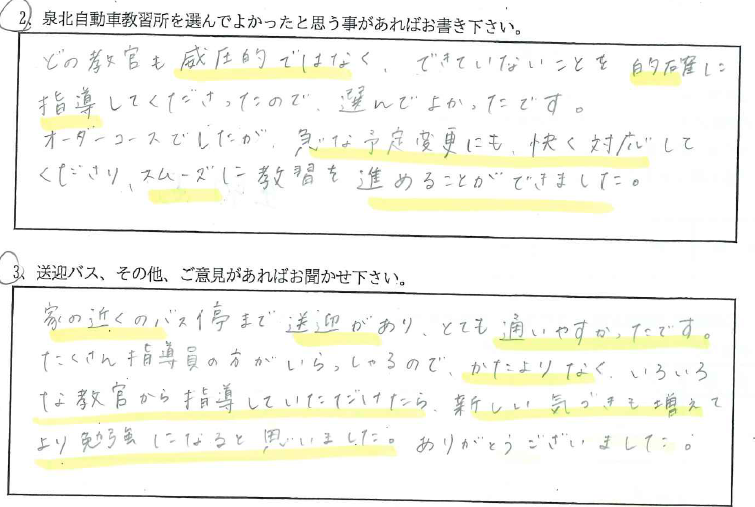 2、泉北自動車教習所を選んでよかったと思う事があればお書き下さい。
どの教官も威圧的ではなく、できていないことを的確に
指導してくださったので、選んでよかったです。
オーダーコースでしたが、急な予定変更にも、快く対応して
くださり、スムーズに教習を進めることができました。
3、送迎バス、その他、ご意見があればお聞かせ下さい。
家の近くのバス停まで送迎があり、とても通いやすかったです。
たくさん指導員の方がいらっしゃるので、かたよりなく、いろいろ
な教官から指導していただけたら、新しい気づきも増えて
より勉強になると思いました。ありがとうございました。